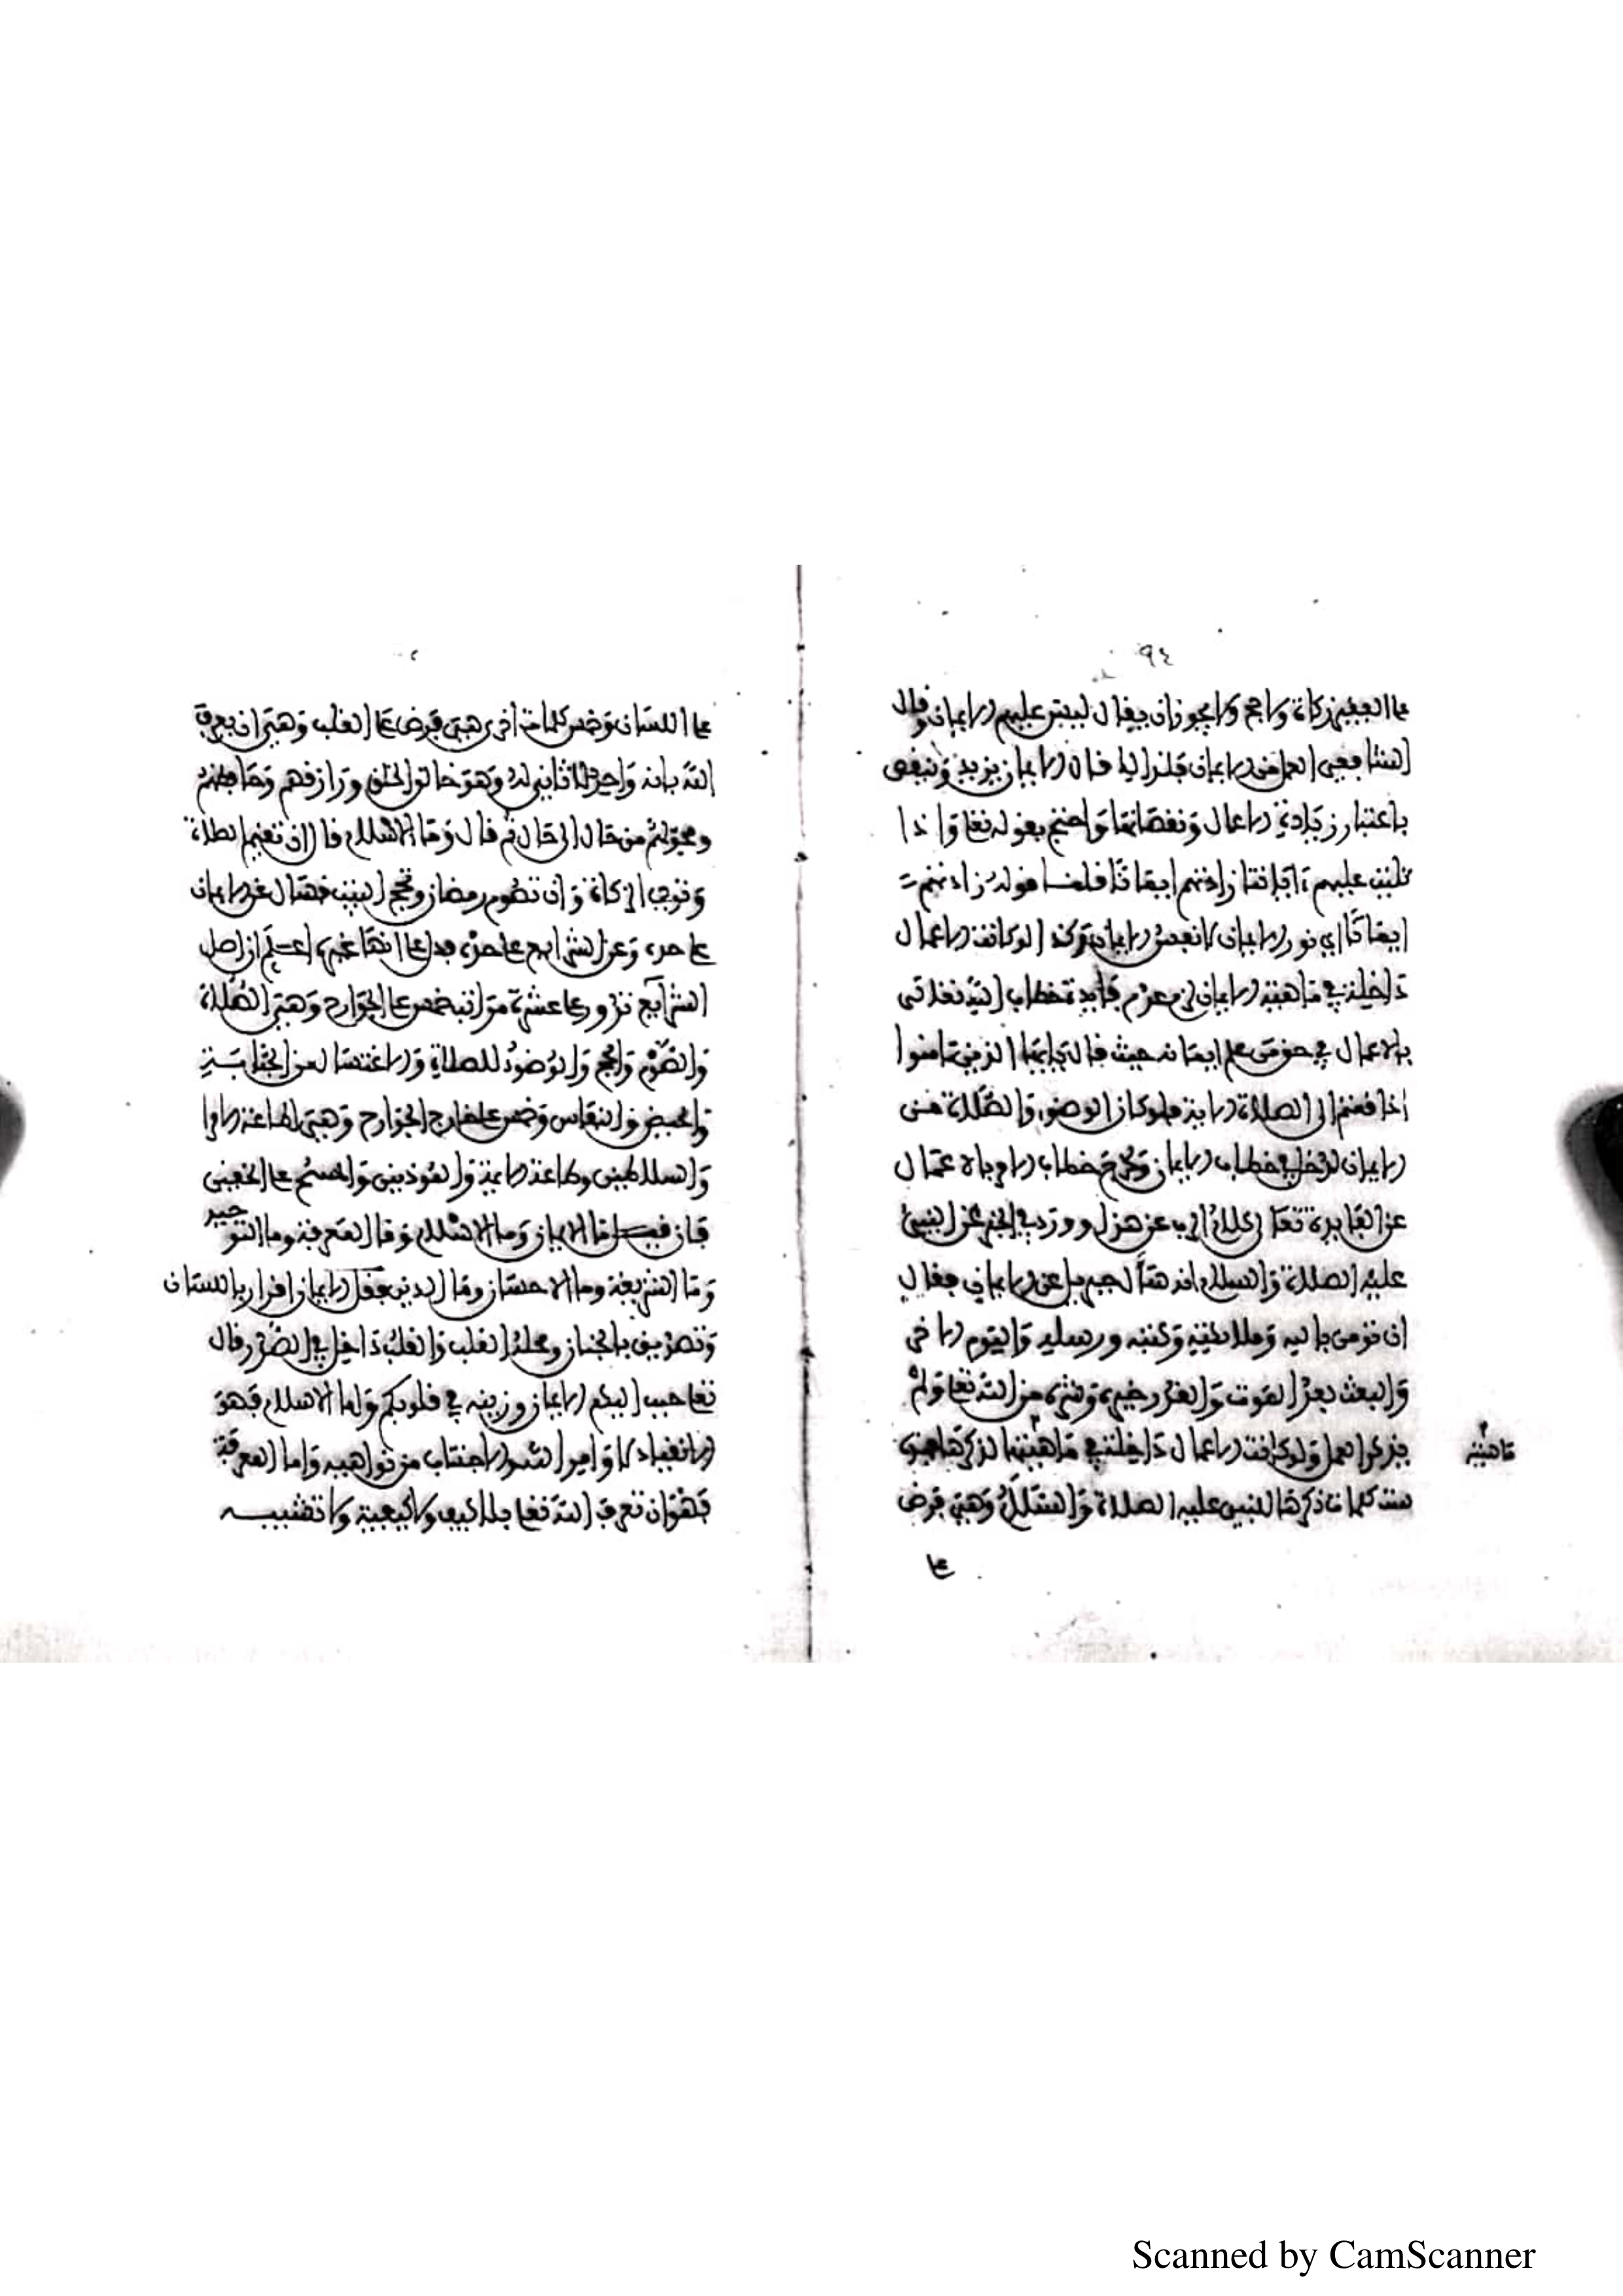 ٩٤
على الفقير زكاة ولا حج ولا يجوز ان يقال ليس عليهم الايمان وقال
الشافعي العمل من الايمان فلذلك قال الايمان يزيد وينقص
باعتبار زيادة الاعمال ونقصانها واحتج بقوله تعا واذا
تليت عليهم ءاياتنا زادتهم ايمانا قلنا قوله زادتهم
ايمانا اي نور الايمان لا نفس الايمان وكذا لو كانت الاعمال
داخلة في ماهية الايمان لزم عدم فايدة خطاب الله تعلى
بالاعمال في حق من علم ايمانه حيث قال يايها الذين ءامنوا
اذا قمتم الى الصلاة الاية فلو كان الوضو والصلاة من
الايمان لدخل في خطاب الايمان خطاب الامر بالاعمال
عن الفايدة تعا كلام الرب عن هزل وورد في الخبر عن النبي
عليه الصلاة والسلام انه سال جبريل عن الايمان فقال
ان تومن بالله وملائكته وكتبه ورسله واليوم الاخر
والبعث بعد الموت والقدر خيره وشره من الله تعا ولم
يذكر العمل ولو كانت الاعمال داخلة في ماهيته لذكرها
ماهيته
ست كلمات ذكرها النبي عليه الصلاة والسلام وهي فرض
على
على اللسان وخمس كلمات اخرى هي فرض على القلب وهي ان يعرف
الله بانه واحد لا ثاني له وهو خالق الخلق ورازقهم وحافظهم
ومحولهم من حال الى حال ثم قال وما الاسلام قال ان تقيم الصلاة
وتوتي الزكاة وان تصوم رمضان وتحج البيت فسال عن الايمان
على حدة وعن الشرايع على حدة فدل على انها غيره اعلم ان اصل
الشرايع تدور على عشرة مراتب خمس على الجوارح وهي الصلاة
والصوم والحج والوضوء للصلاة والاغتسال من الجنابة
والحيض والنفاس وخمس على خارج الجوارح وهي الطاعة للامرا
والسلاطين وطاعة الايمة والموذنين والمسح على الخفين
فان قيل ما الايمان وما الاسلام وما المعرفة وما التوحيد
وما الشريعة وما الاحسان وما الدين فقل الايمان اقرار باللسان
وتصديق بالجنان ومحله القلب والقلب داخل في الصدر قال
تعا حبب اليكم الايمان وزينه في قلوبكم واما الاسلام فهو
الانقياد لاوامر الله والاجتناب من نواهيه واما المعرفة
فهو ان تعرف الله تعا بلا كيف ولا كيفية ولا تشبيه
Scanned by CamScanner